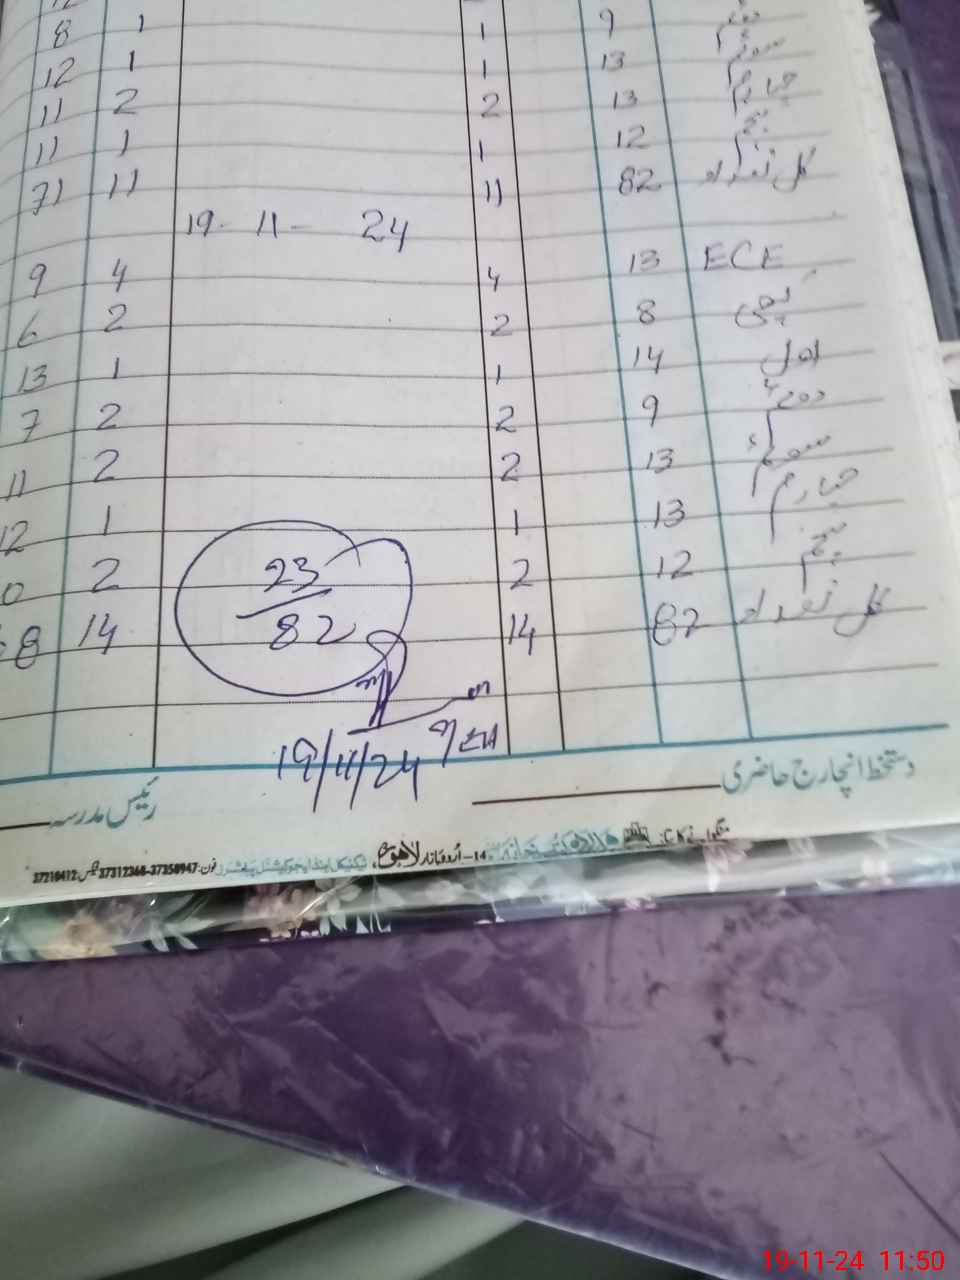 12
8 1 1 9 دوئم
12 1 1 13 سوئم
11 2 2 13 چہارم
11 1 1 12 پنجم
71 11 11 82 کل تعداد
19-11-24
9 4 4 13 ECE
6 2 2 8 کچی
13 1 1 14 اول
7 2 2 9 دوئم
11 2 2 13 سوئم
12 1 1 13 چہارم
0 2 2 12 پنجم
68 14 14 82 کل تعداد
23/82
19/11/24
دستخط انچارج حاضری
رئیس مدرسہ
14-اُردو بازار لاہور ٹیکنیکل اینڈ ایجوکیشنل پبلشرز فون: 37358947-37312368 فیکس: 37210412
19-11-24 11:50